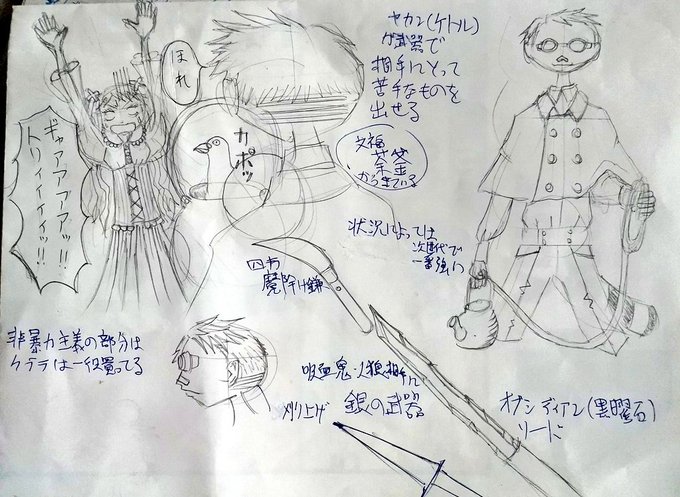 ヤカン(ケトル)
が武器で
相手にとって
苦手なものを
出せる
文福
茶釜
からきている
ほれ
カポッ
ギャアアアアッ!!
トリィィィィィッ!!
状況によっては
次世代で
一番強い
四方
魔除け鎌
非暴力主義の部分は
ケテラは一役買ってる
吸血鬼・人狼相手に
銀の武器
刈り上げ
オブシディアン(黒曜石)
ソード